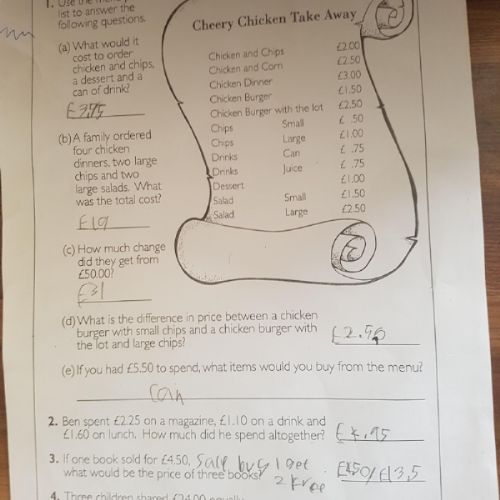 1. Use the menu
list to answer the
following questions.
(a) What would it
cost to order
chicken and chips,
a dessert and a
can of drink?
£3.75
(b) A family ordered
four chicken
dinners, two large
chips and two
large salads. What
was the total cost?
£19
(c) How much change
did they get from
£50.00?
£31
Cheery Chicken Take Away
Chicken and Chips £2.00
Chicken and Corn £2.50
Chicken Dinner £3.00
Chicken Burger £1.50
Chicken Burger with the lot £2.50
Chips Small £ .50
Chips Large £1.00
Drinks Can £ .75
Drinks Juice £ .75
Dessert £1.00
Salad Small £1.50
Salad Large £2.50
(d) What is the difference in price between a chicken
burger with small chips and a chicken burger with £2.50
the lot and large chips?
(e) If you had £5.50 to spend, what items would you buy from the menu?
can
2. Ben spent £2.25 on a magazine, £1.10 on a drink and
£1.60 on lunch. How much did he spend altogether? £4.95
3. If one book sold for £4.50, Sale buy 1 get
what would be the price of three books? 2 free £4.50/£13,5
4. Three children shared £24.00 equally